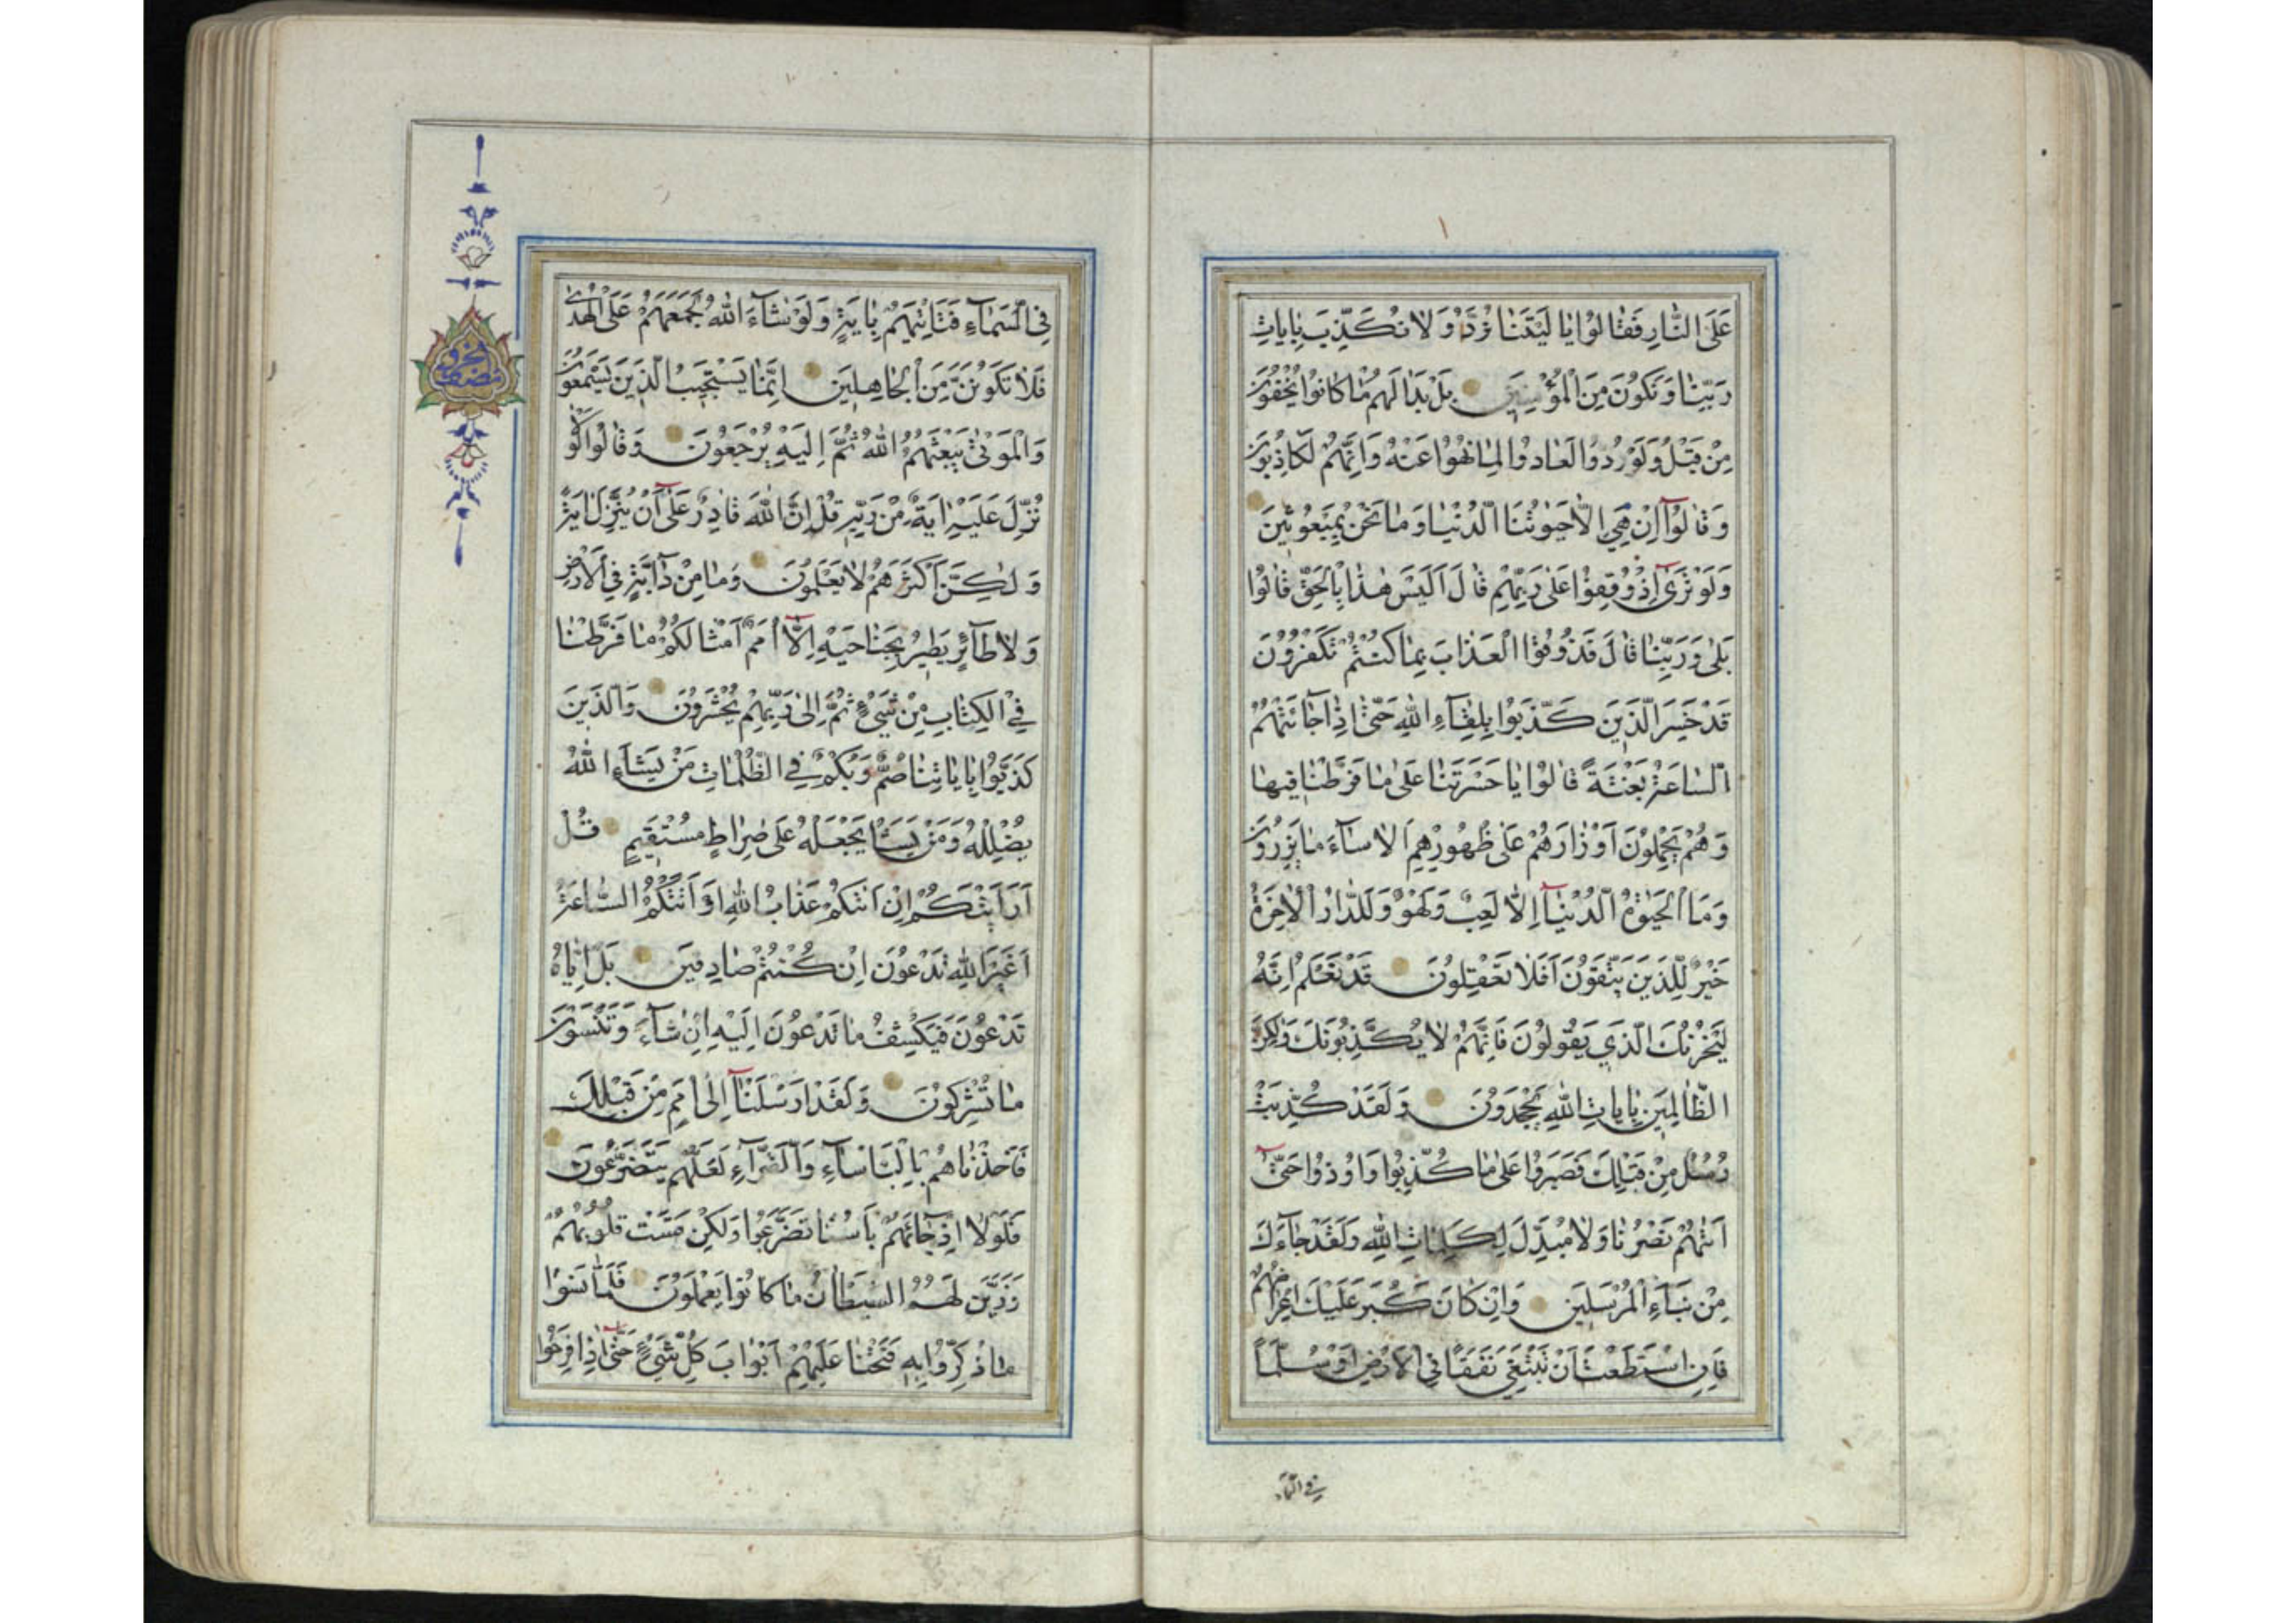 عَلَى النَّارِ فَقَالُوا يَا لَيْتَنَا نُرَدُّ وَلَا نُكَذِّبَ بِاٰيَاتِ
رَبِّنَا وَنَكُونَ مِنَ الْمُؤْمِنِينَ بَلْ بَدَا لَهُمْ مَا كَانُوا يُخْفُونَ
مِنْ قَبْلُ وَلَوْ رُدُّوا لَعَادُوا لِمَا نُهُوا عَنْهُ وَاِنَّهُمْ لَكَاذِبُونَ
وَقَالُوا اِنْ هِيَ اِلَّا حَيٰوتُنَا الدُّنْيَا وَمَا نَحْنُ بِمَبْعُوثِينَ
وَلَوْ تَرٰى اِذْ وُقِفُوا عَلٰى رَبِّهِمْ قَالَ اَلَيْسَ هٰذَا بِالْحَقِّ قَالُوا
بَلٰى وَرَبِّنَا قَالَ فَذُوقُوا الْعَذَابَ بِمَا كُنْتُمْ تَكْفُرُونَ
قَدْ خَسِرَ الَّذِينَ كَذَّبُوا بِلِقَاءِ اللّٰهِ حَتّٰى اِذَا جَائَتْهُمُ
السَّاعَةُ بَغْتَةً قَالُوا يَا حَسْرَتَنَا عَلٰى مَا فَرَّطْنَا فِيهَا
وَهُمْ يَحْمِلُونَ اَوْزَارَهُمْ عَلٰى ظُهُورِهِمْ اَلَا سَاءَ مَا يَزِرُونَ
وَمَا الْحَيٰوةُ الدُّنْيَا اِلَّا لَعِبٌ وَلَهْوٌ وَلَلدَّارُ الْاٰخِرَةُ
خَيْرٌ لِلَّذِينَ يَتَّقُونَ اَفَلَا تَعْقِلُونَ قَدْ نَعْلَمُ اِنَّهُ
لَيَحْزُنُكَ الَّذِي يَقُولُونَ فَاِنَّهُمْ لَا يُكَذِّبُونَكَ وَلٰكِنَّ
الظَّالِمِينَ بِاٰيَاتِ اللّٰهِ يَجْحَدُونَ وَلَقَدْ كُذِّبَتْ
رُسُلٌ مِنْ قَبْلِكَ فَصَبَرُوا عَلٰى مَا كُذِّبُوا وَاُوذُوا حَتّٰى
اَتٰيهُمْ نَصْرُنَا وَلَا مُبَدِّلَ لِكَلِمَاتِ اللّٰهِ وَلَقَدْ جَاءَكَ
مِنْ نَبَاءِ الْمُرْسَلِينَ وَاِنْ كَانَ كَبُرَ عَلَيْكَ اِعْرَاضُهُمْ
فَاِنِ اسْتَطَعْتَ اَنْ تَبْتَغِيَ نَفَقًا فِي الْاَرْضِ اَوْ سُلَّمًا
فِي السَّمَاءِ فَتَاْتِيَهُمْ بِاٰيَةٍ وَلَوْ شَاءَ اللّٰهُ لَجَمَعَهُمْ عَلَى الْهُدٰى
فَلَا تَكُونَنَّ مِنَ الْجَاهِلِينَ اِنَّمَا يَسْتَجِيبُ الَّذِينَ يَسْمَعُونَ
وَالْمَوْتٰى يَبْعَثُهُمُ اللّٰهُ ثُمَّ اِلَيْهِ يُرْجَعُونَ وَقَالُوا لَوْلَا
نُزِّلَ عَلَيْهِ اٰيَةٌ مِنْ رَبِّهِ قُلْ اِنَّ اللّٰهَ قَادِرٌ عَلٰى اَنْ يُنَزِّلَ اٰيَةً
وَلٰكِنَّ اَكْثَرَهُمْ لَا يَعْلَمُونَ وَمَا مِنْ دَابَّةٍ فِي الْاَرْضِ
وَلَا طَائِرٍ يَطِيرُ بِجَنَاحَيْهِ اِلَّا اُمَمٌ اَمْثَالُكُمْ مَا فَرَّطْنَا
فِي الْكِتَابِ مِنْ شَيْءٍ ثُمَّ اِلٰى رَبِّهِمْ يُحْشَرُونَ وَالَّذِينَ
كَذَّبُوا بِاٰيَاتِنَا صُمٌّ وَبُكْمٌ فِي الظُّلُمَاتِ مَنْ يَشَاءِ اللّٰهُ
يُضْلِلْهُ وَمَنْ يَشَاْ يَجْعَلْهُ عَلٰى صِرَاطٍ مُسْتَقِيمٍ قُلْ
اَرَاَيْتَكُمْ اِنْ اَتٰيكُمْ عَذَابُ اللّٰهِ اَوْ اَتَتْكُمُ السَّاعَةُ
اَغَيْرَ اللّٰهِ تَدْعُونَ اِنْ كُنْتُمْ صَادِقِينَ بَلْ اِيَّاهُ
تَدْعُونَ فَيَكْشِفُ مَا تَدْعُونَ اِلَيْهِ اِنْ شَاءَ وَتَنْسَوْنَ
مَا تُشْرِكُونَ وَلَقَدْ اَرْسَلْنَا اِلٰى اُمَمٍ مِنْ قَبْلِكَ
فَاَخَذْنَاهُمْ بِالْبَاْسَاءِ وَالضَّرَّاءِ لَعَلَّهُمْ يَتَضَرَّعُونَ
فَلَوْلَا اِذْ جَائَهُمْ بَاْسُنَا تَضَرَّعُوا وَلٰكِنْ قَسَتْ قُلُوبُهُمْ
وَزَيَّنَ لَهُمُ الشَّيْطَانُ مَا كَانُوا يَعْمَلُونَ فَلَمَّا نَسُوا
مَا ذُكِّرُوا بِهِ فَتَحْنَا عَلَيْهِمْ اَبْوَابَ كُلِّ شَيْءٍ حَتّٰى اِذَا فَرِحُوا